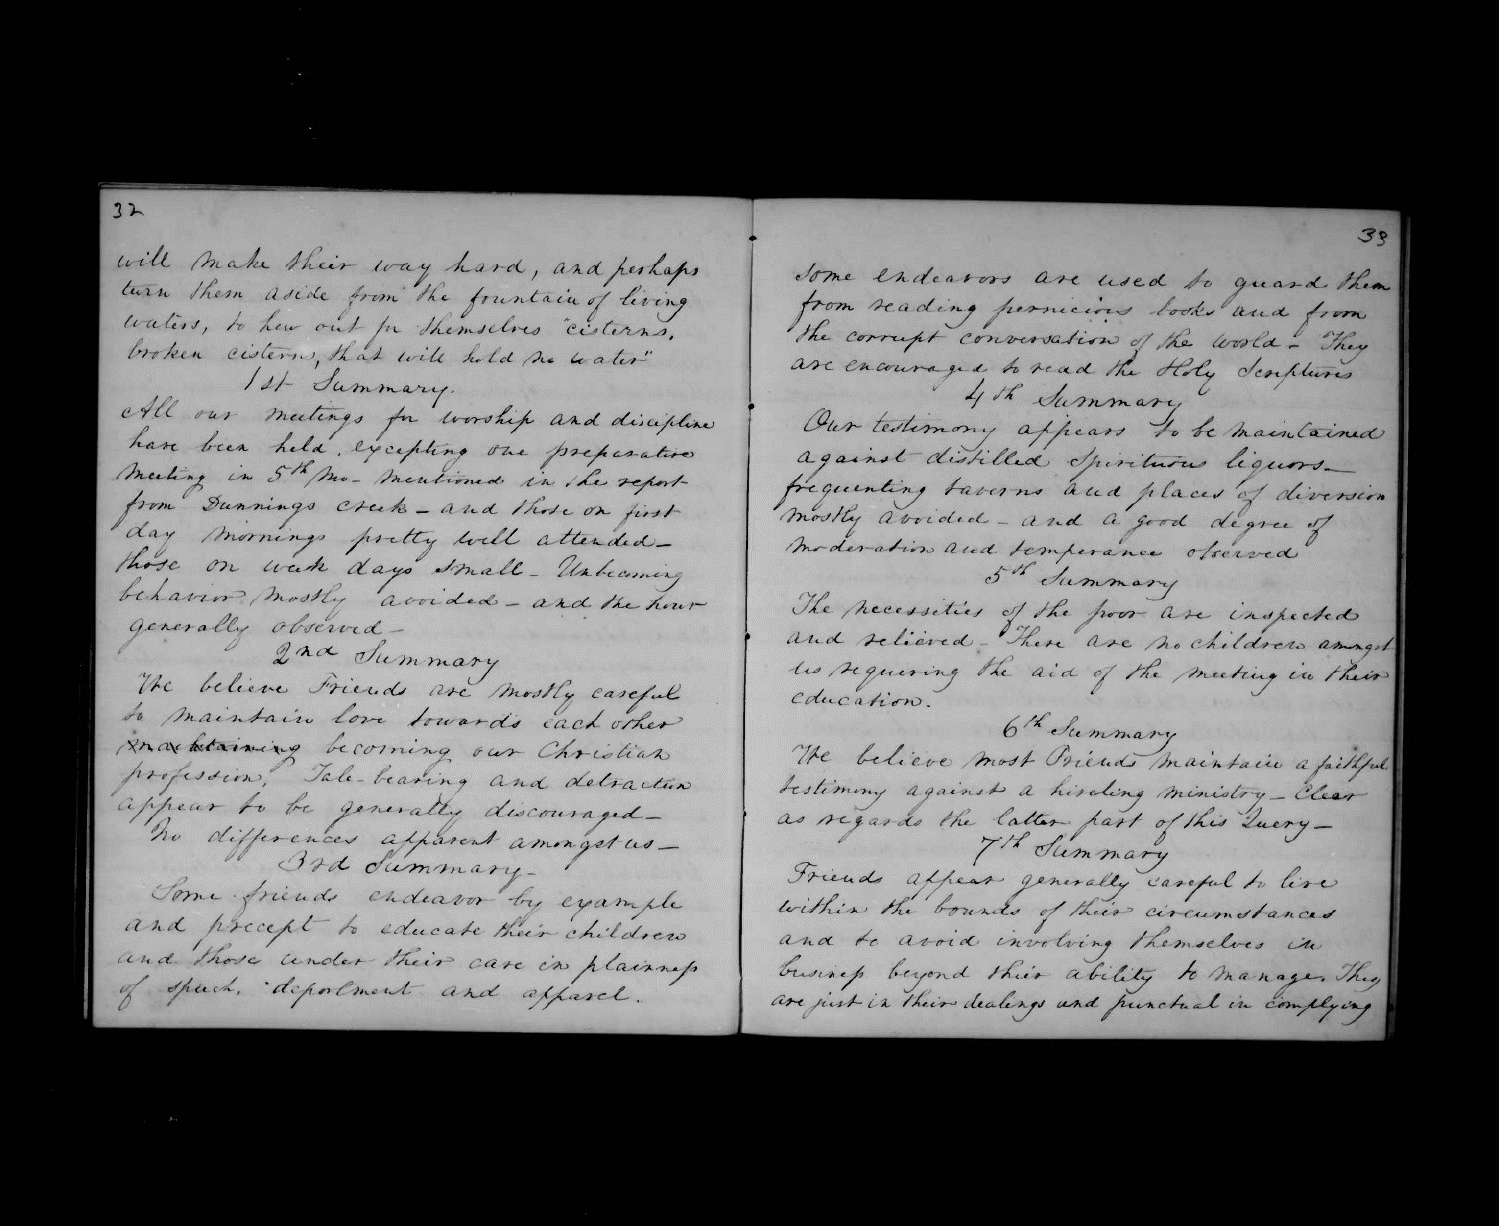 32
will make their way hard, and perhaps
turn them aside from the fountain of living
waters, to hew out for themselves "cisterns,
broken cisterns, that will hold no water"
1st Summary.
All our meetings for worship and discipline
have been held, excepting one preparative
meeting in 5th mo- mentioned in the report
from Dunnings creek - and those on first
day mornings pretty well attended -
those on week days small - Unbecoming
behavior mostly avoided - and the hour
generally observed -
2nd Summary
We believe Friends are mostly careful
to maintain love towards each other
maintaining becoming our Christian
profession. Tale-bearing and detraction
appear to be generally discouraged -
No differences apparent amongst us -
3rd Summary -
Some friends endeavor by example
and precept to educate their children
and those under their care in plainness
of speech, deportment and apparel.
33
some endeavors are used to guard them
from reading pernicious books and from
the corrupt conversation of the world - They
are encouraged to read the Holy Scriptures
4th Summary
Our testimony appears to be maintained
against distilled spirituous liquors -
frequenting taverns and places of diversion
mostly avoided - and a good degree of
moderation and temperance observed
5th Summary
The necessities of the poor are inspected
and relieved - There are no children amongst
us requiring the aid of the meeting in their
education.
6th Summary
We believe most Friends maintain a faithful
testimony against a hireling ministry - Clear
as regards the latter part of this Query -
7th Summary
Friends appear generally careful to live
within the bounds of their circumstances
and to avoid involving themselves in
business beyond their ability to manage. They
are just in their dealings and punctual in complying